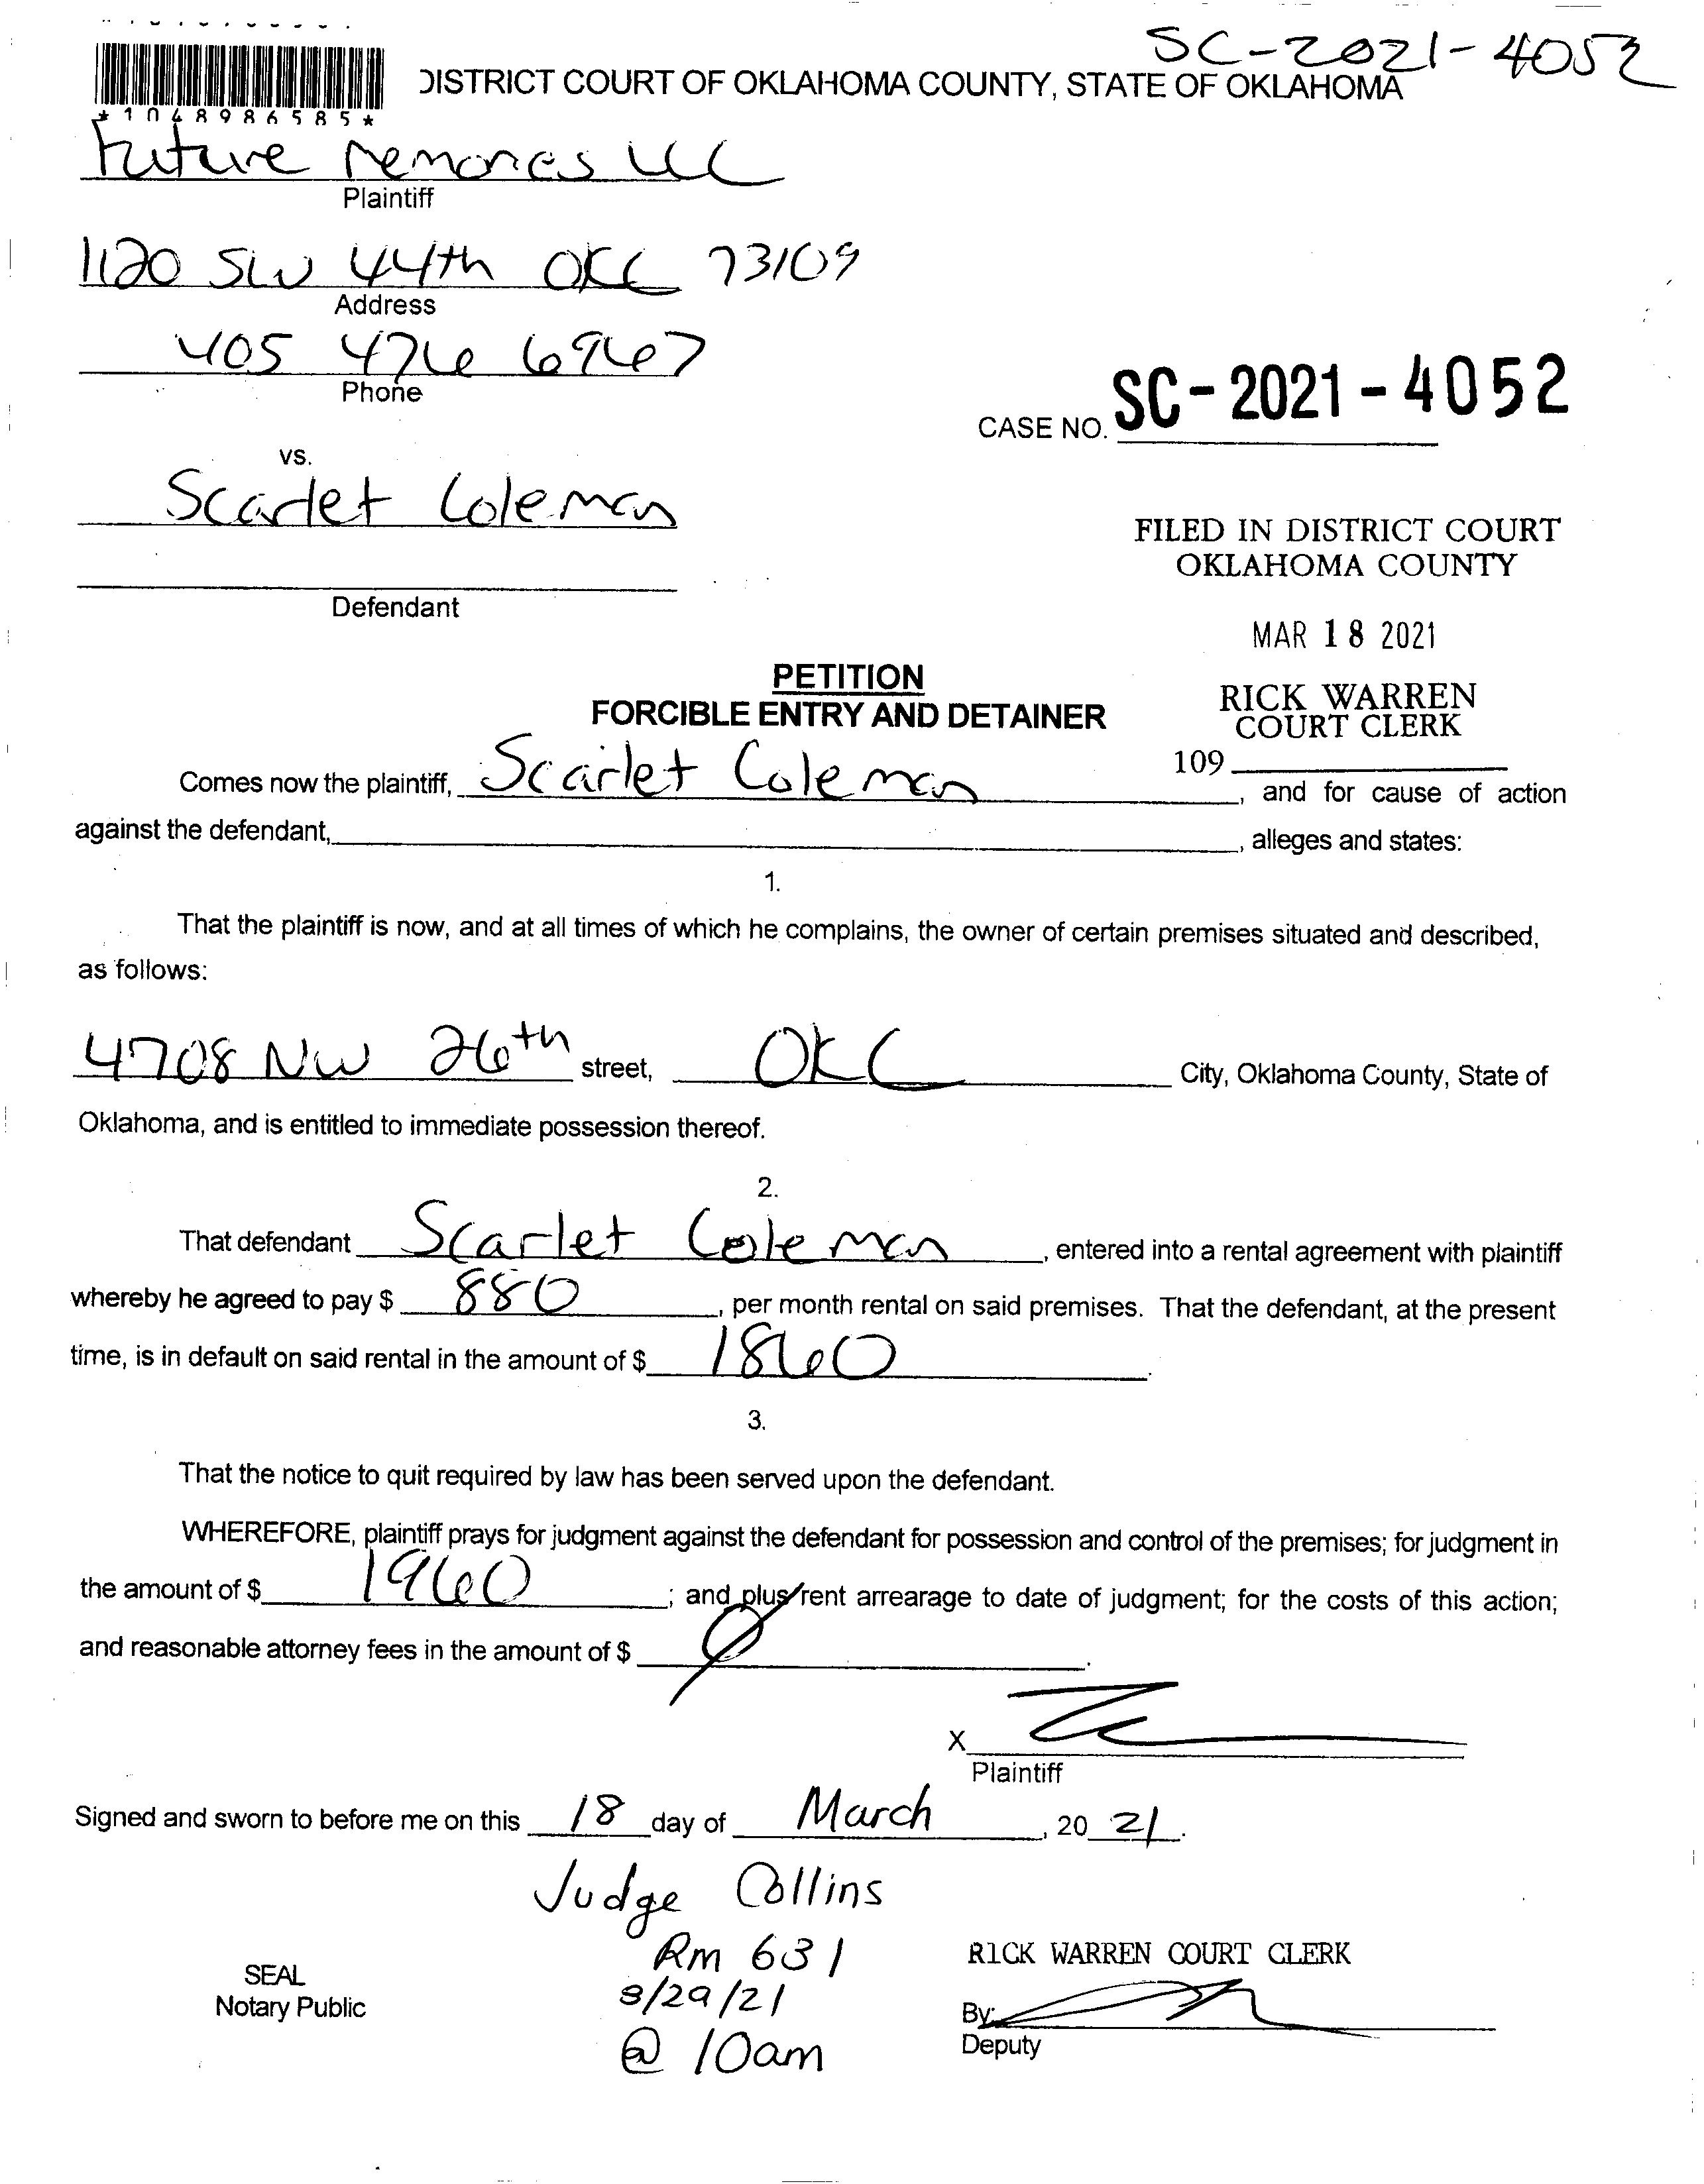 SC-2021-4052
DISTRICT COURT OF OKLAHOMA COUNTY, STATE OF OKLAHOMA
*1048986585*
Future Memories LLC
Plaintiff
1120 SW 44th OKC 73109
Address
405 476 6967
Phone
CASE NO. SC-2021-4052
vs.
Scarlet Coleman
FILED IN DISTRICT COURT
OKLAHOMA COUNTY
Defendant
MAR 18 2021
PETITION
FORCIBLE ENTRY AND DETAINER
RICK WARREN
COURT CLERK
109
Comes now the plaintiff, Scarlet Coleman, and for cause of action
against the defendant, , alleges and states:
1.
That the plaintiff is now, and at all times of which he complains, the owner of certain premises situated and described,
as follows:
4708 NW 26th street, OKC City, Oklahoma County, State of
Oklahoma, and is entitled to immediate possession thereof.
2.
That defendant Scarlet Coleman, entered into a rental agreement with plaintiff
whereby he agreed to pay $ 880, per month rental on said premises. That the defendant, at the present
time, is in default on said rental in the amount of $ 1860.
3.
That the notice to quit required by law has been served upon the defendant.
WHEREFORE, plaintiff prays for judgment against the defendant for possession and control of the premises; for judgment in
the amount of $ 1960; and plus rent arrearage to date of judgment; for the costs of this action;
and reasonable attorney fees in the amount of $ Ø.
X
Plaintiff
Signed and sworn to before me on this 18 day of March, 20 21.
Judge Collins
Rm 631
3/29/21
@ 10am
SEAL
Notary Public
RICK WARREN COURT CLERK
By:
Deputy